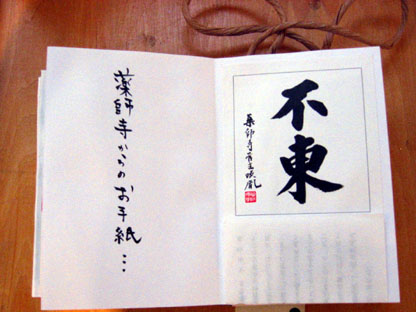 薬師寺からのお手紙…
不東
薬師寺管主暎胤